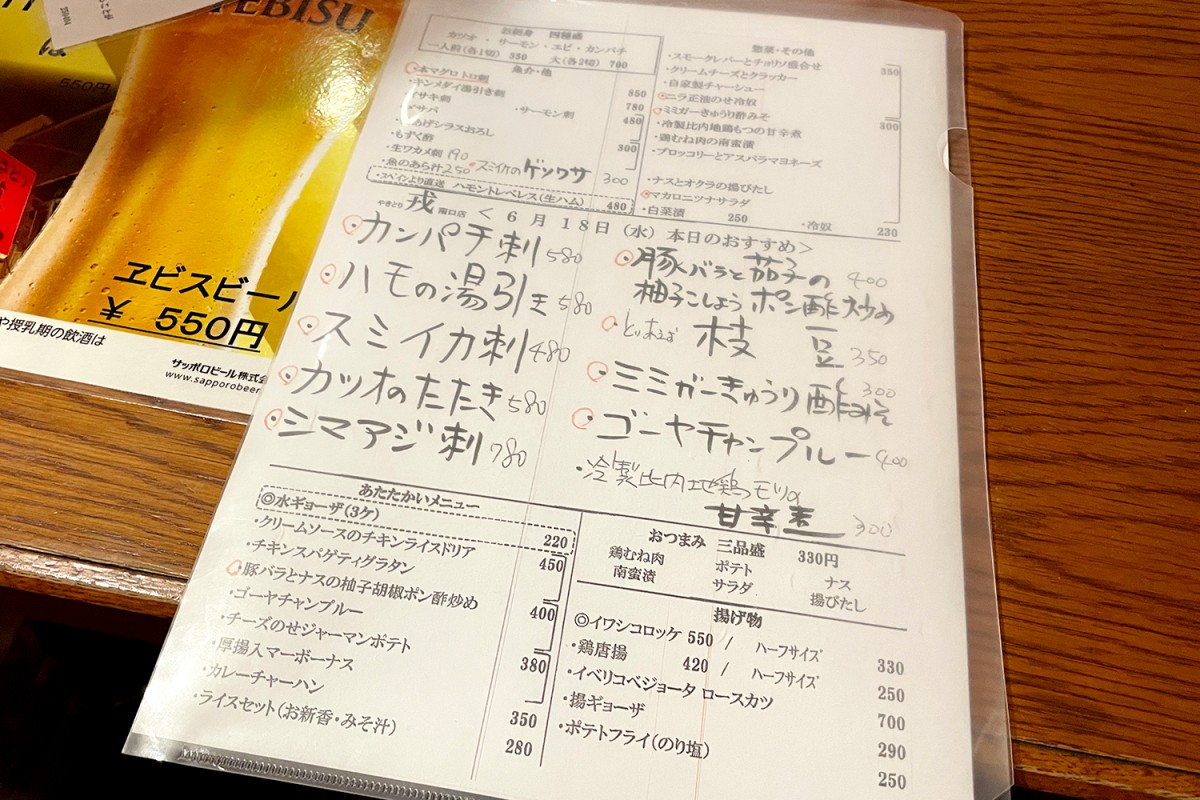 YEBISU
550円
ヱビスビー
¥ 550円
や授乳期の飲酒は
サッポロビール株式会
www.sapporobeer
お刺身 四種盛
カツオ・サーモン・エビ・カンパチ
一人前(各1切) 330 大(各2切) 700
魚介・他
・本マグロトロ刺 850
・キンメダイ湯引き刺 780
サキ刺 480
サバ ・サーモン刺
あげシラスおろし 300
・もずく酢
・生ワカメ刺 190
・魚のあら汁 250 ・スミイカのゲソワサ 300
・スペインより直送 ハモントレベレス(生ハム) 480
惣菜・その他
・スモークレバーとチョリソ盛合せ 350
・クリームチーズとクラッカー
・自家製チャーシュー
・ニラ正油のせ冷奴 300
・ミミガーきゅうり酢みそ
・冷製比内地鶏もつの甘辛煮
・鶏むね肉の南蛮漬
・ブロッコリーとアスパラマヨネーズ
・ナスとオクラの揚びたし
・マカロニツナサラダ
・白菜漬 250 ・冷奴 230
やきとり 戎 南口店 < 6月18日(水)本日のおすすめ>
・カンパチ刺 580
・ハモの湯引き 580
・スミイカ刺 480
・カツオのたたき 580
・シマアジ刺 780
・豚バラと茄子の 400
柚子こしょうポン酢炒め
・とい豆 枝豆 350
・ミミガーきゅうり酢みそ 300
・ゴーヤチャンプルー 400
・冷製比内地鶏モツの
甘辛煮 300
あたたかいメニュー
◎水ギョーザ(3ケ) 220
・クリームソースのチキンライスドリア 450
・チキンスパゲティグラタン
・豚バラとナスの柚子胡椒ポン酢炒め 400
・ゴーヤチャンプルー
・チーズのせジャーマンポテト 380
・厚揚入マーボーナス
・カレーチャーハン 350
・ライスセット(お新香・みそ汁) 280
おつまみ 三品盛 330円
鶏むね肉 ポテト ナス
南蛮漬 サラダ 揚びたし
揚げ物
◎イワシコロッケ 550 / ハーフサイズ 330
・鶏唐揚 420 / ハーフサイズ 250
・イベリコベジョータ ロースカツ 700
・揚ギョーザ 290
・ポテトフライ(のり塩) 250